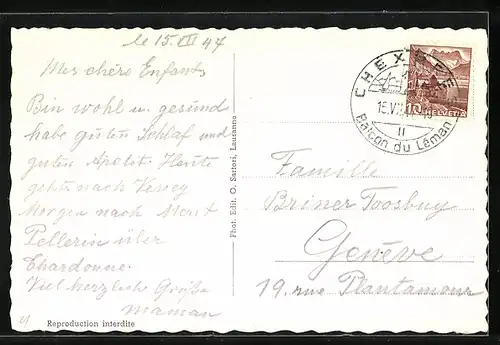 le 15. VII 47
Mes chéro Enfants
Bin wohl u. gesund
habe guten Schlaf und
guten Apetit. Heute
gehts nach Vevey
Morgen nach Mont
Pellerin über
Chardonne.
Viel herzlech Grüße
maman
Reproduction interdite
Phot. Edit. O. Sartori, Lausanne
CHEXBRES
15.VII
II
Balcon du Léman
10
HELVETIA
Famille
Briner Toosbuy
Genève
19, rue Plantamour